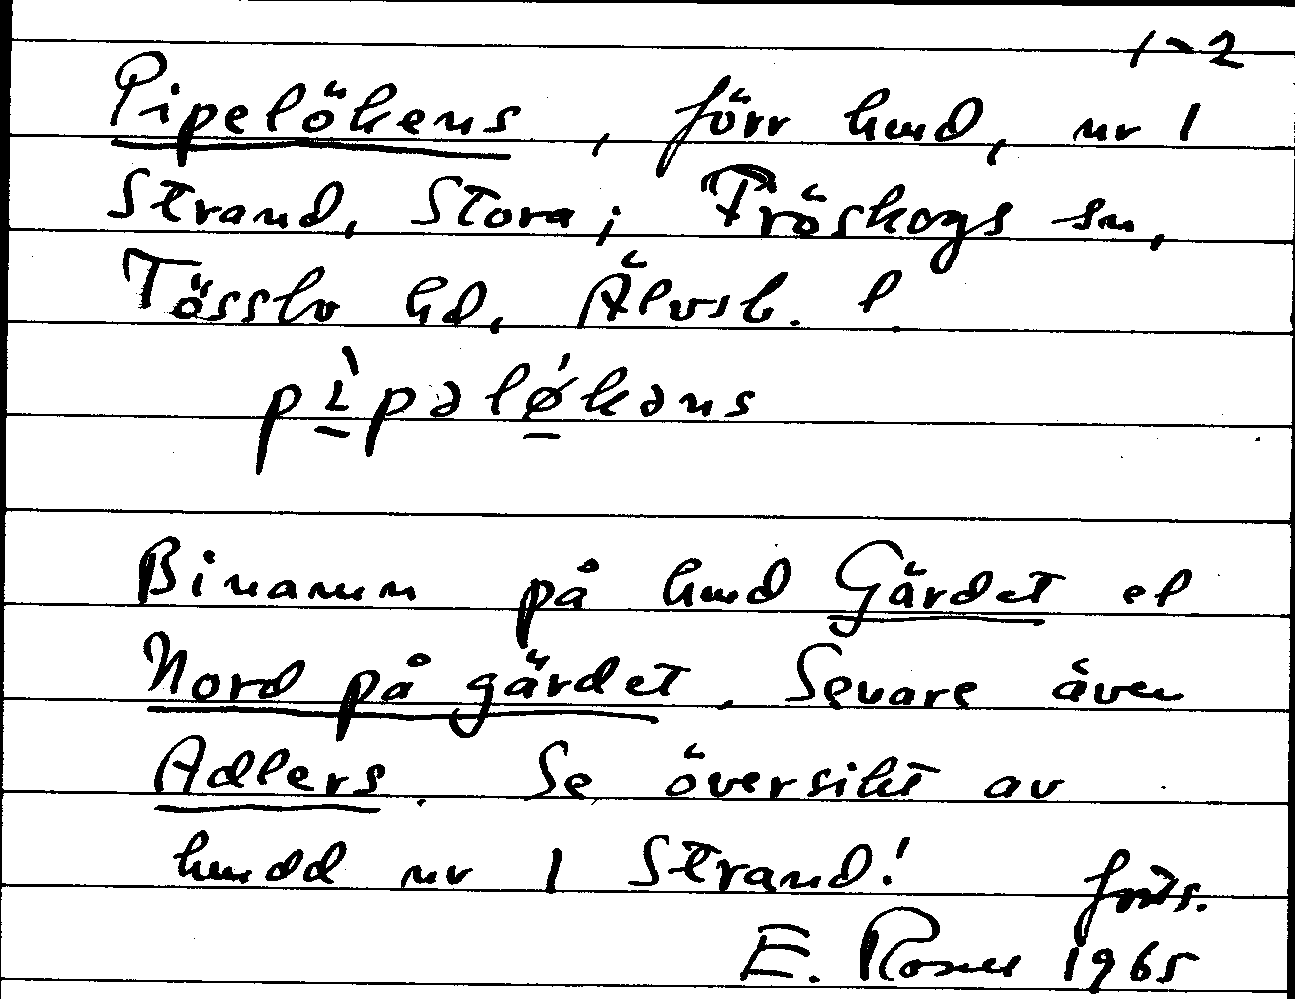 1-2
Pipelökens, förr hmd, nr 1
Strand, Stora; Fröskogs sn,
Tösslv hd, Älvsb. l.
pı̀pəlǿkəns
Binamn på hmd Gärdet el
Nord på gärdet. Senare även
Adlers. Se översikt av
hmdd nr 1 Strand! forts.
E. Rosner 1965